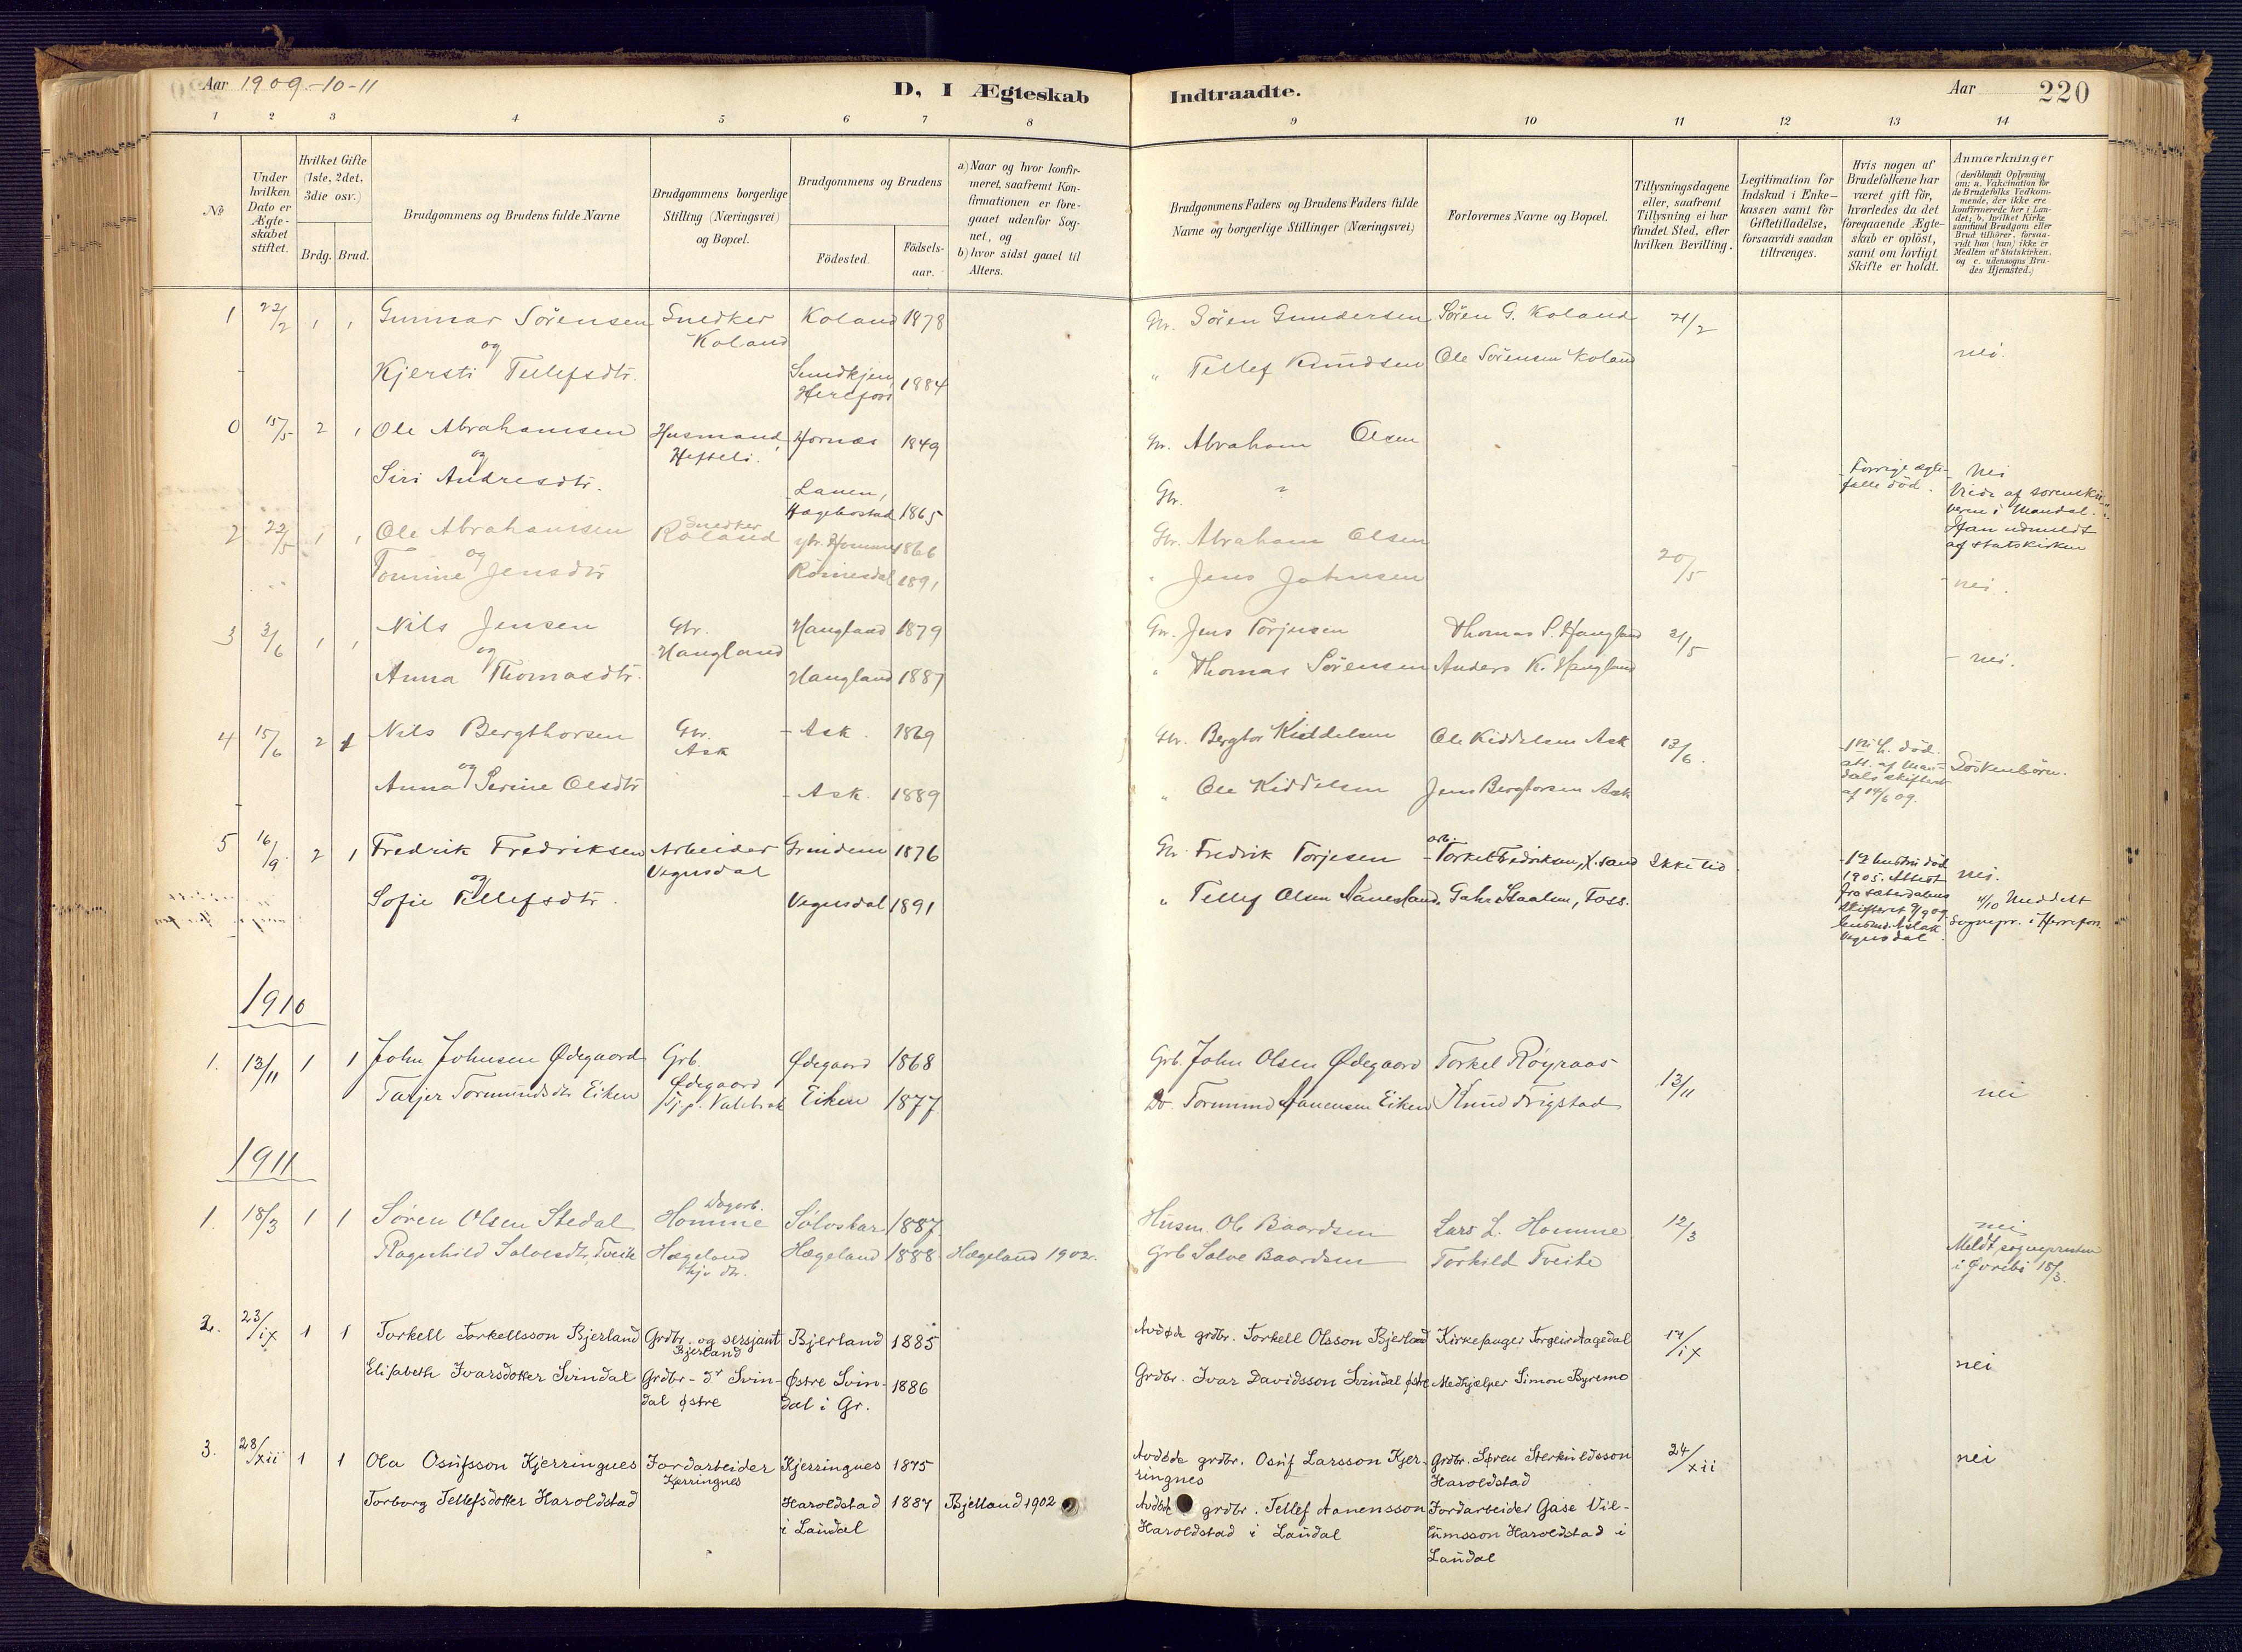 Aar 1909-10-11
D, I Ægteskab
Indtraadte.
Aar
220
1 2 3 4 5 6 7 8 9 10 11 12 13 14
No
Under hvilken Dato er Ægteskabet stiftet.
Hvilket Gifte (1ste, 2det, 3die osv.)
Brdg. Brud.
Brudgommens og Brudens fulde Navne
Brudgommens borgerlige Stilling (Næringsvei) og Bopæl.
Brudgommens og Brudens
Födested.
Födsels-aar.
a) Naar og hvor konfirmeret, saafremt Konfirmationen er foregaaet udenfor Sognet, og
b) hvor sidst gaaet til Alters.
Brudgommens Faders og Brudens Faders fulde Navne og borgerlige Stillinger (Næringsvei)
Forlovernes Navne og Bopæl.
Tillysningsdagene eller, saafremt Tillysning ei har fundet Sted, efter hvilken Bevilling.
Legitimation for Indskud i Enkekassen samt for Giftetilladelse, forsaavidt saadan tiltrænges.
Hvis nogen af Brudefolkene har været gift för, hvorledes da det foregaaende Ægteskab er oplöst, samt om lovligt Skifte er holdt.
Anmærkninger (deriblandt Oplysning om: a. Vakcination for de Brudefolks Vedkommende, der ikke ere konfirmerede her i Landet; b. hvilket Kirkesamfund Brudgom eller Brud tilhörer, forsaavidt han (hun) ikke er Medlem af Statskirken, og c. udensogns Brudes Hjemsted.)
1 22/2 1 1 Gunnar Sörensen Snedker Koland 1878 Gbr. Sören Gundersen Sören G. Koland 21/2
og Koland
Kjersti Tellefsdtr. Herefoss 1884 " Tellef Knudsen Ole Sörensen Koland nei.
0 15/5 2 1 Ole Abrahamsen Husmand Hornæs 1849 Gbr. Abraham Olsen
og Hefteli.
Siri Andresdtr. Lauen, Hægebostad 1865 Gbr. " Forrige ægtefelle död. nei
Viede af sorenskriveren i Mandal. Han udmeldt af statskirken
2 22/5 1 1 Ole Abrahamsen Snedker Roland 1866 Gbr. Abraham Olsen 20/5
og
Tomine Jensdtr 1891 " Jens Johnsen nei.
3 3/6 1 1 Nils Jensen Gbr. Haugland Haugland 1879 Gbr. Jens Torjusen Thomas S. Haugland 21/5
og
Anna Thomasdtr. Haugland 1887 " Thomas Sörensen Anders K. Haugland nei.
4 15/6 2 1 Nils Bergthorsen Gbr. Ask Ask. 1869 Gbr. Bergtor Kiddelsen Ole Kiddelsen Ask 13/6. död. att. af Mandals skifteret af 14/6 09. Söskenbörn.
og
Anna Serine Olsdtr Ask. 1889 " Ole Kiddelsen Jens Bergtorsen Ask
5 16/9 2 1 Fredrik Fredriksen Arbeider Vegusdal Grindem 1876 Gbr. Fredrik Torjesen arb. Torkel Fredriksen, X.sand Ikke tid 1ste hustru död 1905. Attest fra sæterdalens skifteret 9/9 09 nei.
og
Sofie Tellefsdtr. Vegusdal 1891 " Tellef Olsen Staalen, Foss. 4/10 Meddelt Sognepr. i Herrefoss
1910
1. 13/11 1 1 John Johnsen Ødegaard Grb. Ødegaard Ødegaard 1868 Grb. John Olsen Ødegaard Torkel Röyraas 13/11
Tarjer Tormundsdtr Eiken Eiken 1877 Do. Tormund Aanensen Eiken Knud Trygstad nei
1911
1. 18/3 1 1 Sören Olsen Stedal Dagarb. Homme 1887 Husm. Ole Baardsen Lars L. Homme 12/3 nei
Ragnhild Salvesdtr. Tveite Hægeland Hægeland 1888 Hægeland 1902. Grb Salve Baardsen Torkild Tveite Meldt sognepresten i Øvrebö 18/3.
2. 23/ix 1 1 Torkell Torkellsson Bjerland Grdbr. og sersjant Bjerland Bjerland 1885 Avdøde grdbr. Torkell Olsson Bjerland Kirkesanger Torgeir Aagedal 17/ix
Elisabeth Ivarsdotter Svindal Grdbr-dr Svindal østre Østre Svindal i Gr. 1886 Grdbr. Ivar Davidsson Svindal østre Medhjælper Simon Byremo nei
3. 28/xii 1 1 Ola Osufsson Kjerringnes Jordarbeider Kjerringnes Kjerringnes 1875 Avdøde grdbr. Osuf Larsson Kjerringnes Grdbr. Søren Sterkuldsson Haroldstad 24/xii nei
Torborg Tellefsdotter Haroldstad Haroldstad i Laudal 1887 Bjelland 1902 Avdøde grdbr. Tellef Aanensson Haroldstad i Laudal Jordarbeider Gase Villumsson Haroldstad i Laudal